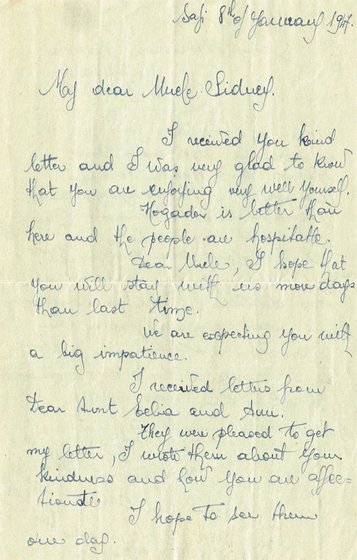 Safi 8th of January 1947.
My dear Uncle Sidney.
I received you kind
letter and I was very glad to know
that you are enjoying very well yourself.
Mogador is better than
here and the people are hospitable.
Dear Uncle, I hope that
you will stay with us more days
than last time.
We are expecting you with
a big impatience.
I received letters from
Dear Aunt Celia and Ann.
They were pleased to get
my letter, I wrote them about your
kindness and how you are affec-
tionate
I hope to see them
one day.